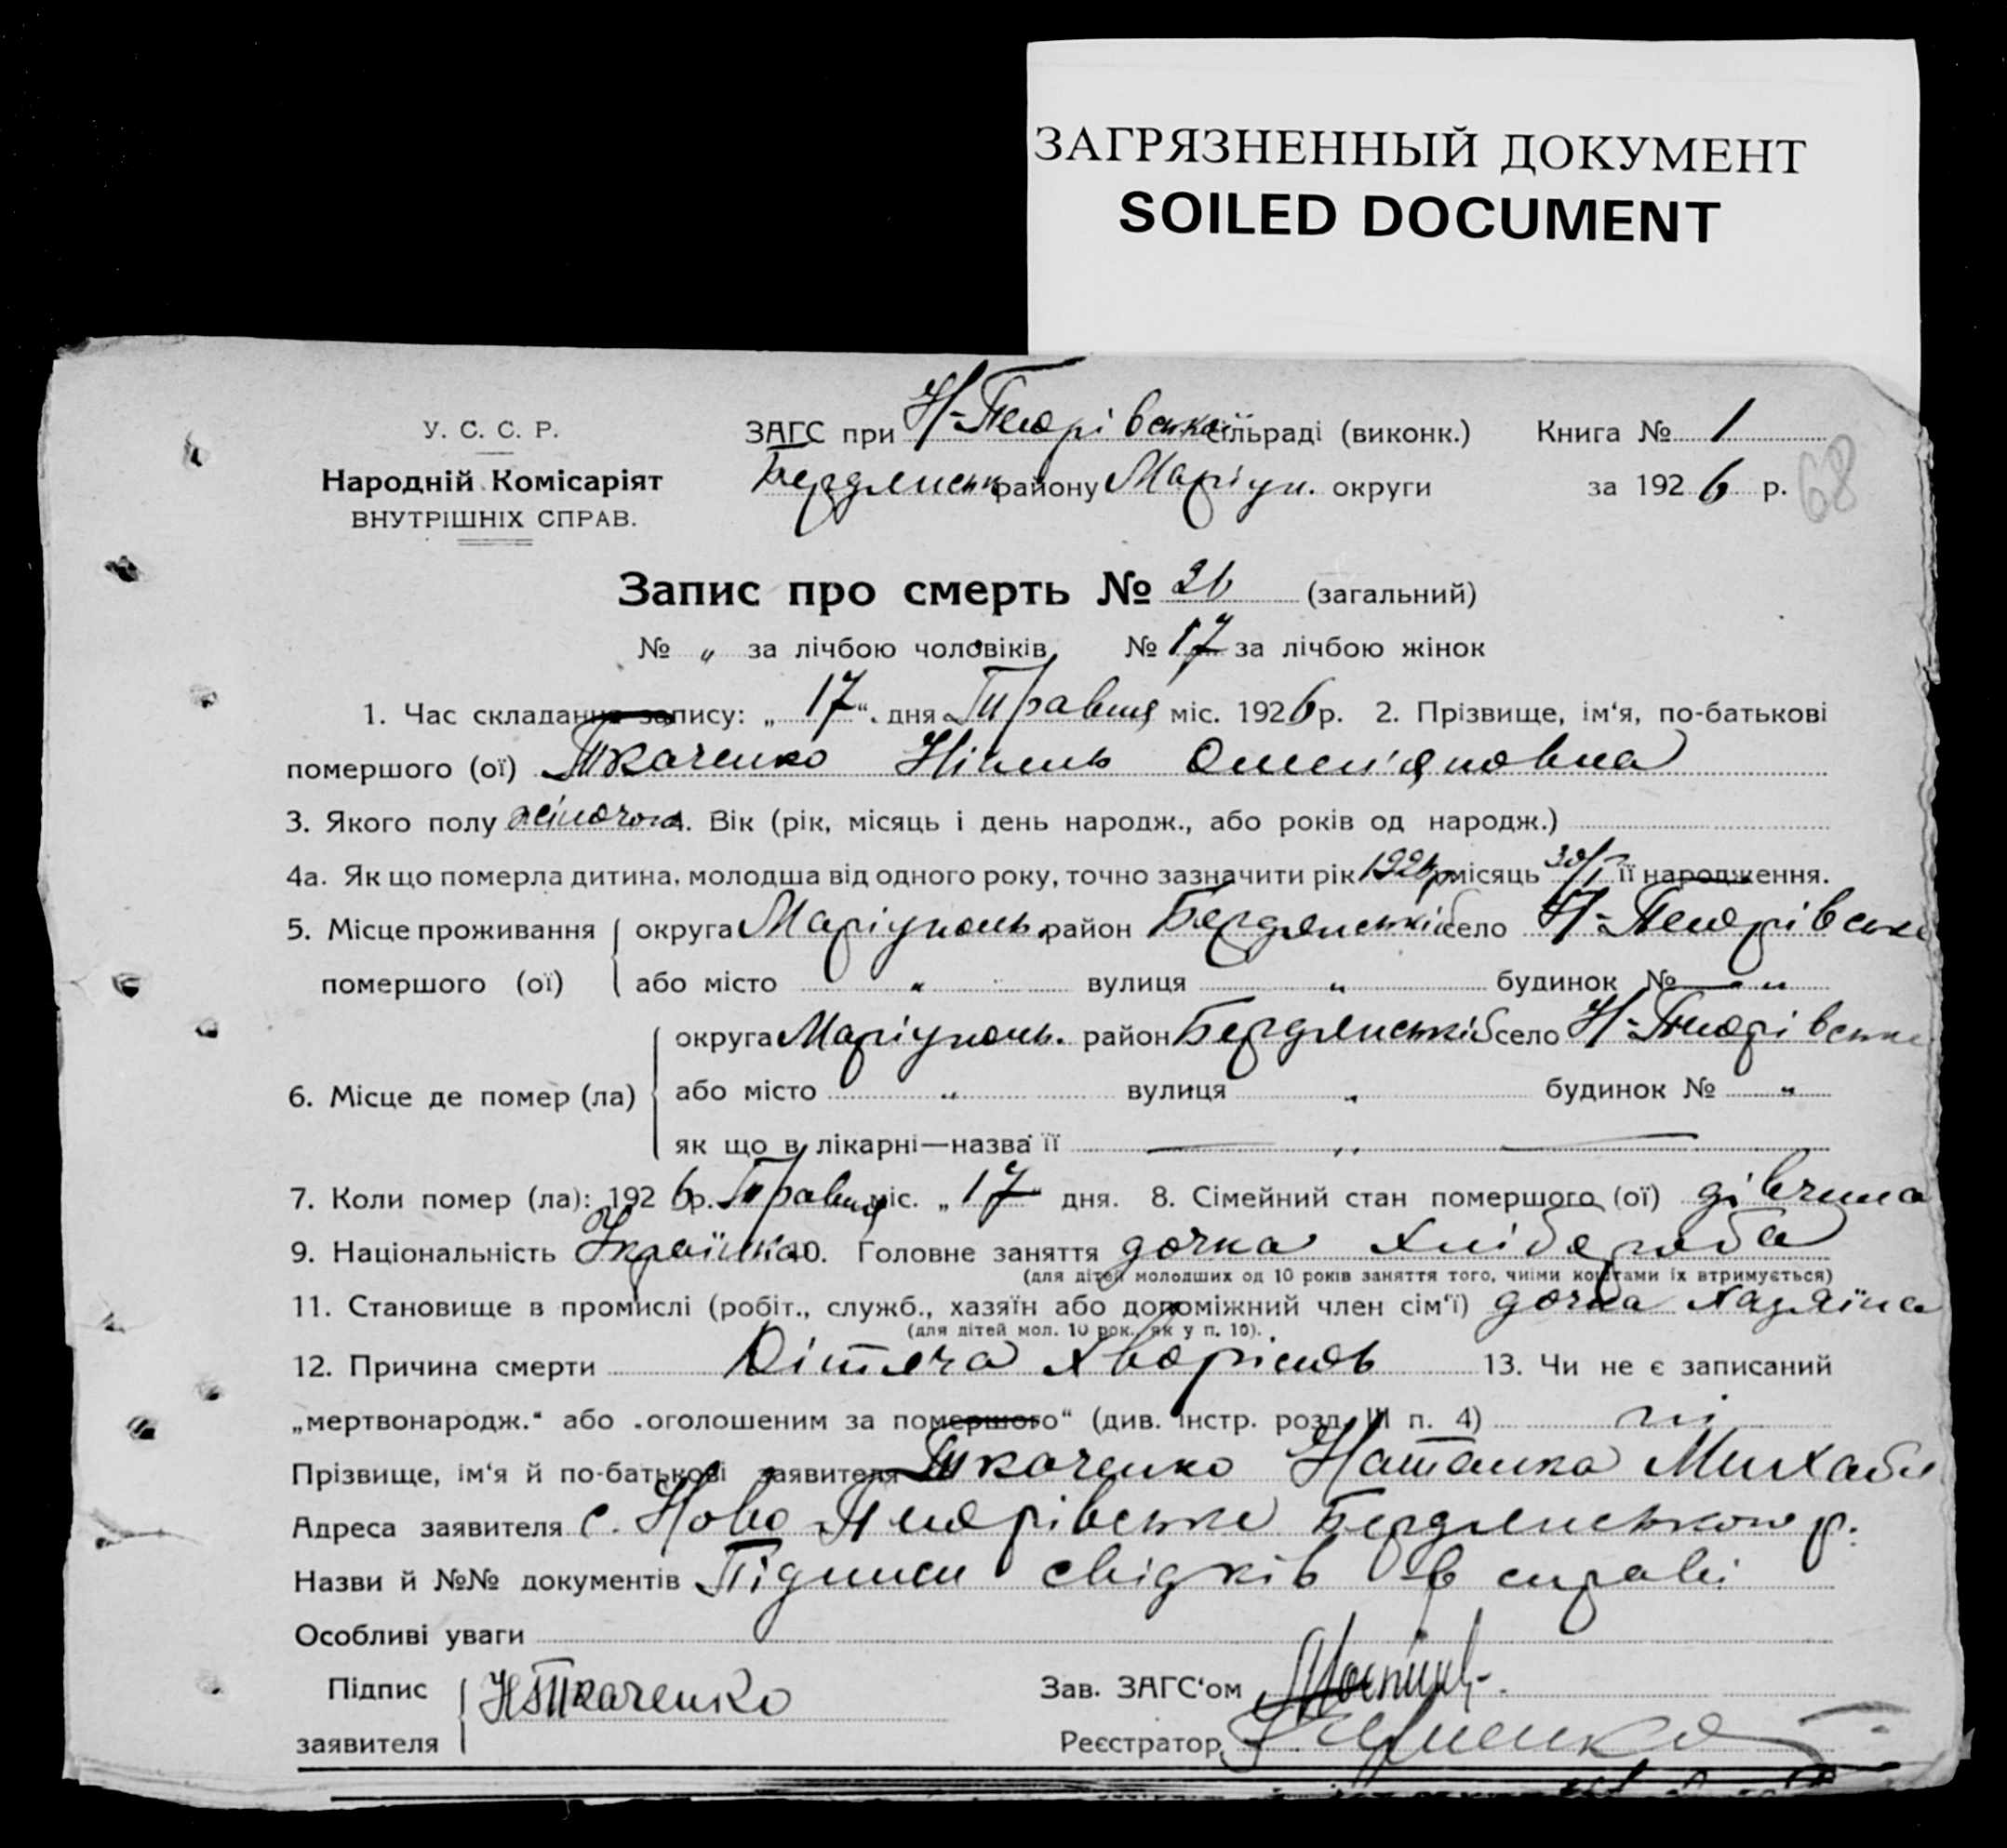 ЗАГРЯЗНЕННЫЙ ДОКУМЕНТ
SOILED DOCUMENT
У. С. С. Р.
Народній Комісаріят
ВНУТРІШНІХ СПРАВ.
ЗАГС при сільраді (виконк.) Книга № 1
району Маріуп. округи за 1926 р. 68
Запис про смерть № 26 (загальний)
№ „ за лічбою чоловіків № 17 за лічбою жінок
1. Час складання запису: „17“ дня Травня міс. 1926 р. 2. Прізвище, ім‘я, по-батькові
помершого (ої) Ткаченко
3. Якого полу жіночого 4. Вік (рік, місяць і день народж., або років од народж.)
4а. Як що померла дитина, молодша від одного року, точно зазначити рік 1926 р місяць 30/I її народження.
5. Місце проживання округа Маріуполь. район Бердянській село
помершого (ої) або місто „ вулиця „ будинок № „
округа Маріуполь. район Бердянській село
6. Місце де помер (ла) або місто „ вулиця „ будинок № „
як що в лікарні—назва її „
7. Коли помер (ла): 1926 р. Травня міс. „17“ дня. 8. Сімейний стан помершого (ої) дівчина
9. Національність Українка 10. Головне заняття дочка хлібороба
(для дітей молодших од 10 років заняття того, чиїми коштами їх втримується)
11. Становище в промислі (робіт., служб., хазяїн або допоміжний член сім‘ї) дочка хазяїна
(для дітей мол. 10 рок., як у п. 10).
12. Причина смерти Дітяча хворість 13. Чи не є записаний
„мертвонародж.“ або „оголошеним за помершого“ (див. інстр. розд. III п. 4) ні
Прізвище, ім‘я й по-батькові заявителя Ткаченко Наталка
Адреса заявителя с. Ново Бердянського р.
Назви й №№ документів Підписи свідків в справі
Особливі уваги
Підпис Н Ткаченко Зав. ЗАГС‘ом
заявителя Реєстратор